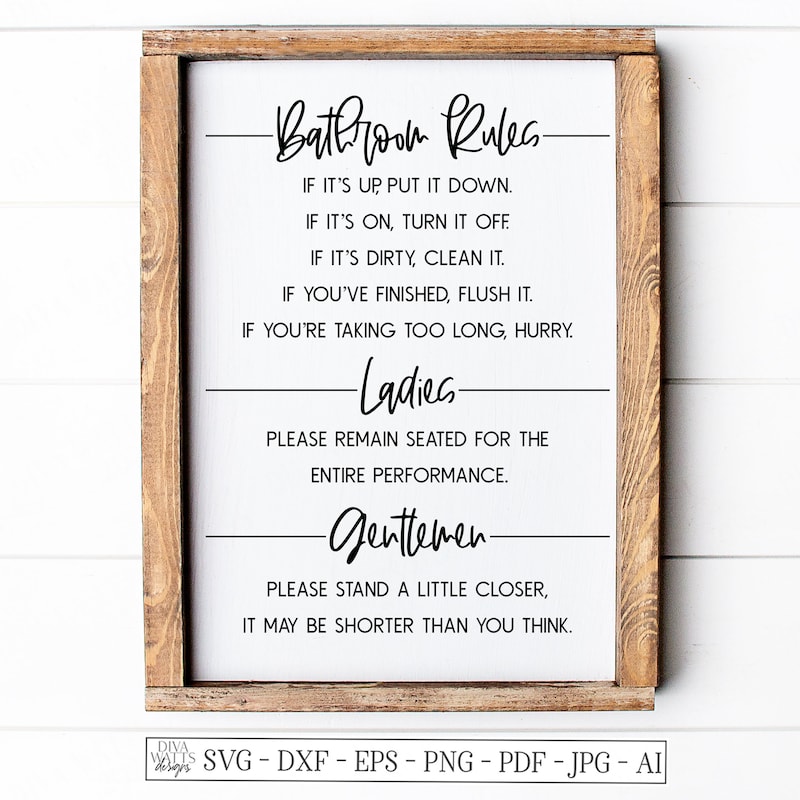 Bathroom Rules
IF IT'S UP, PUT IT DOWN.
IF IT'S ON, TURN IT OFF.
IF IT'S DIRTY, CLEAN IT.
IF YOU'VE FINISHED, FLUSH IT.
IF YOU'RE TAKING TOO LONG, HURRY.
Ladies
PLEASE REMAIN SEATED FOR THE
ENTIRE PERFORMANCE.
Gentlemen
PLEASE STAND A LITTLE CLOSER,
IT MAY BE SHORTER THAN YOU THINK.
DIVA
WATTS
designs
SVG - DXF - EPS - PNG - PDF - JPG - AI